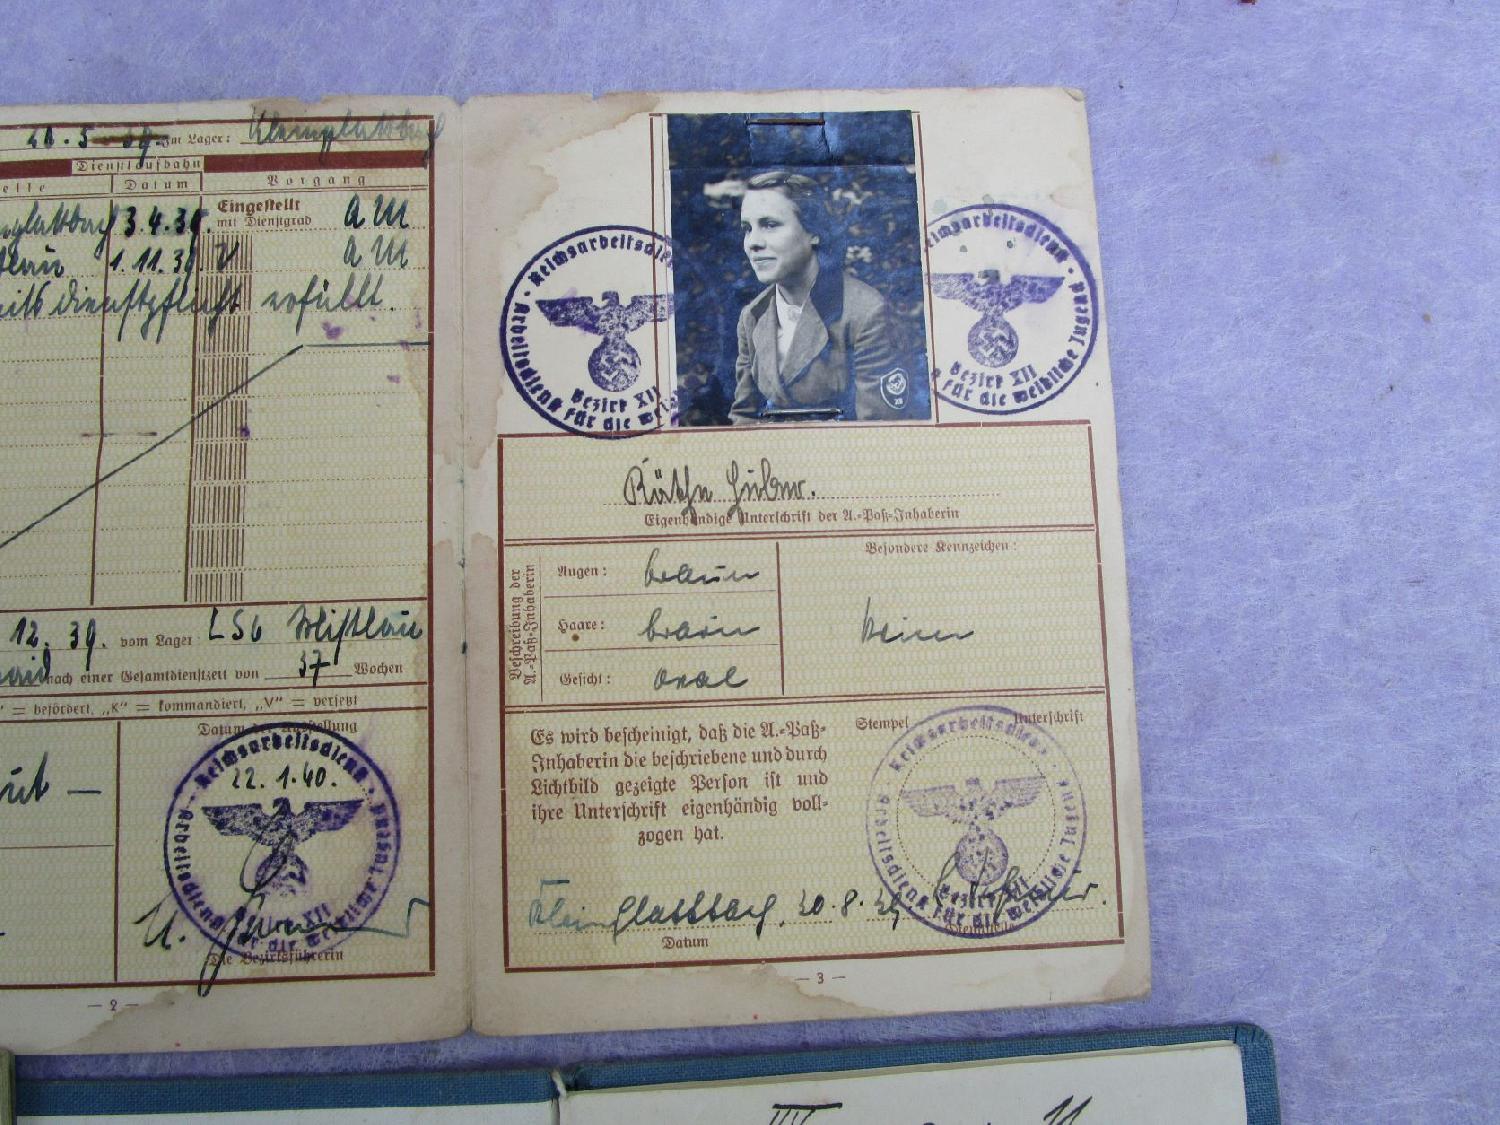 Im Lager:
Dienstlaufbahn
Datum
Vorgang
3.4.39.
Eingestellt
mit Dienstgrad
A M
1.11.39.
V
A M
dienstpflicht erfüllt.
12. 39. vom Lager
nach einer Gesamtdienstzeit von 37 Wochen
= befördert, „K“ = kommandiert, „V“ = versetzt
Datum der Ausstellung
22.1.40.
Reichsarbeitsdienst
Arbeitsdienst für die weibliche Jugend
Bezirk XII
Die Bezirksführerin
— 2 —
Reichsarbeitsdienst
Arbeitsdienst für die
Bezirk XII
Reichsarbeitsdienst
für die weibliche Jugend
Bezirk XII
XII
Käthe
Eigenhändige Unterschrift der A.-Paß-Inhaberin
Beschreibung der
A.-Paß-Inhaberin
Augen: braun
Haare: braun
Gesicht: oval
Besondere Kennzeichen:
keine
Es wird bescheinigt, daß die A.-Paß-
Inhaberin die beschriebene und durch
Lichtbild gezeigte Person ist und
ihre Unterschrift eigenhändig voll-
zogen hat.
Stempel
Unterschrift
Reichsarbeitsdienst
Arbeitsdienst für die weibliche Jugend
Bezirk XII
Kleinglattbach, 20.8.39
Datum
— 3 —